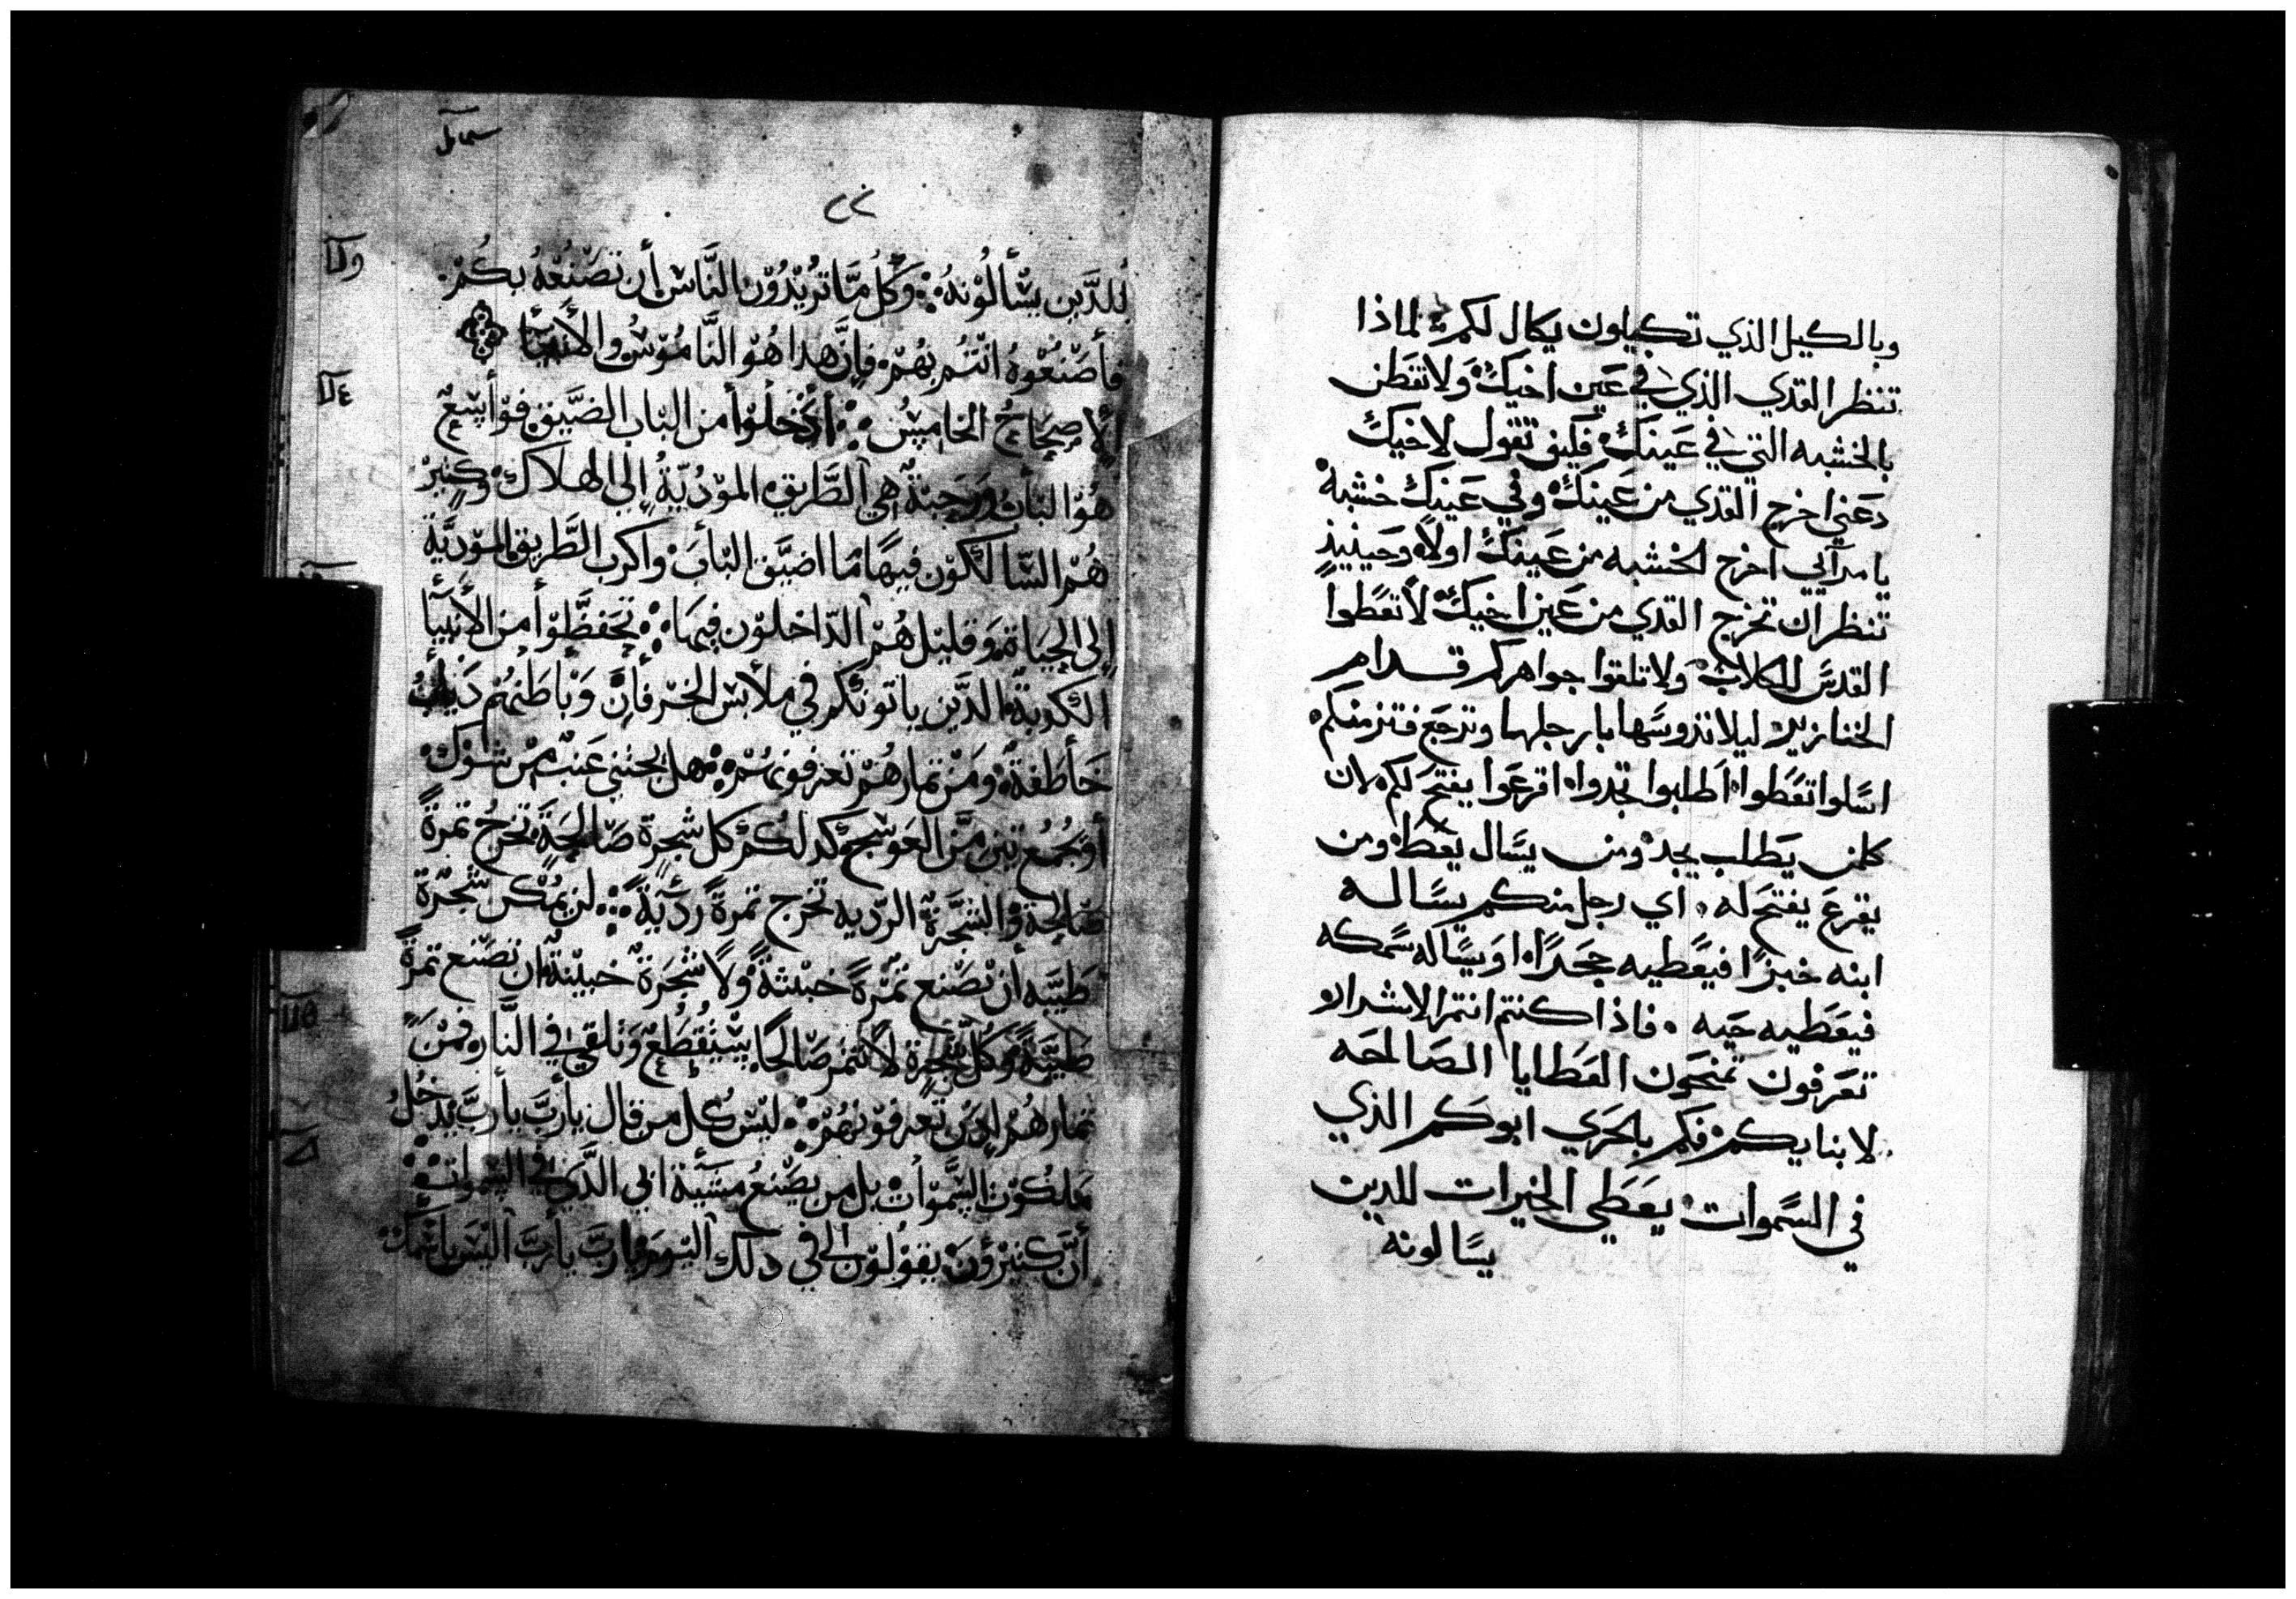 وبالكيل الذي تكيلون يكال لكم لماذا
تنظر القدي الذي في عَين اخيكَ وَلا تفَطن
بالخشبه التي في عَينكَ فكيف تقول لاخيكَ
دعَني اخرج القدي من عَينكَ وفي عَينكَ خشبة
يا مرآئي اخرج الخشبه من عَينكَ اولاً وحَينيذٍ
تنظر ان تخرج القدي من عَين اخيكَ لا تعَطوا
القدسَ للكلاب وَلا تلقوا جواهركم قدام
الخنازير ليلا تدوسَها بارجلها وترجَع فتزمنكم
اسَلوا تعَطوا اطلبوا تجدوا اقرعَوا يفتحَ لكم لان
كلمن يَطلب يجد ومن يسَال يعَطا ومن
يقرعَ يفتحَ له اي رجل منكم يسَاله
ابنه خبزًا فيعَطيه حجَرًا اوَ يسَاله سَمكه
فيعَطيه حَيه فاذا كنتم انتم الاشرار
تعَرفون تمنحَون العَطايا الصَالحَه
لابنايكم فكَم بالحَري ابوكَم الذي
في السَموات يعَطي الخيرات للدين
يسَالونه
سمايل
٢٢
للدَّين يسْألُوْنهُ وَكُلُ مَّا تُرِيْدُوْن النَّاسْ أن تصْنعُهُ بكُمْ
فأصْنعُوْهُ انْتُم بهُمْ فإنَّ هدا هُوْ النَّامُوْسُ والأنبْيَأ
ألإصحَاحُ الخامِسُ أدْخلوْا من البْاب الضيَّق فوْأسِعٌ
هُوْ البْابُ وَرَحبْةٌ هي الطَّريق الموْدُيّةُ إلي الهلاك وَكثِيرْ
هُمْ السَّالكوْن فيهَا مَا اضيَّق البْابَ وْاكرب الطَّريق الموْديَّة
إلي الحيَاة وَقليْل هُمْ الدّاخلوْن فيهَا تحَفظَّوْا من الأنبْيَأ
الكدبةْ الدَّين ياتونكم في ملأبسْ الخرفأن وَبْأطَنهُم دَيأبٌ
خَأطَفةٌ وَمنْ تمارهُمْ تعرفونهُمْ هل يجتني عَنبٌ منْ شوْك
أوْيجُمع تين منَّ العَوْسَج وكدلكُ كل شجَرة صَالحَةٍ تخرجُ تمرةً
صَالحة والشجَّرةُ الرّديه تخرج تمرةً رديَّةً لن يمُكن شجْرة
طَيبَّه أن تصْنع تمْرةً خبْيثةً وَلا شجَرة خبيْثةٌ ان تصْنع تمرةً
طَيبَّةً وَكل شجْرة لأ تتمر صَالحًا تقْطَعُ وَتلقي في النَّار فمنْ
تمارهُم تعرفوْنهُمْ ليْس كُل من قال يأربَّ يأربَّ يدخُلُ
مَلكوُت السَّموْات بل من يصْنعُ مشيَّة ابي الدَّي في السْموات
أنَّ كثيْرُوْن يقوْلوْن لي في دلك اليْومَ يأربَّ يأربَّ اليْس بأسْمكْ